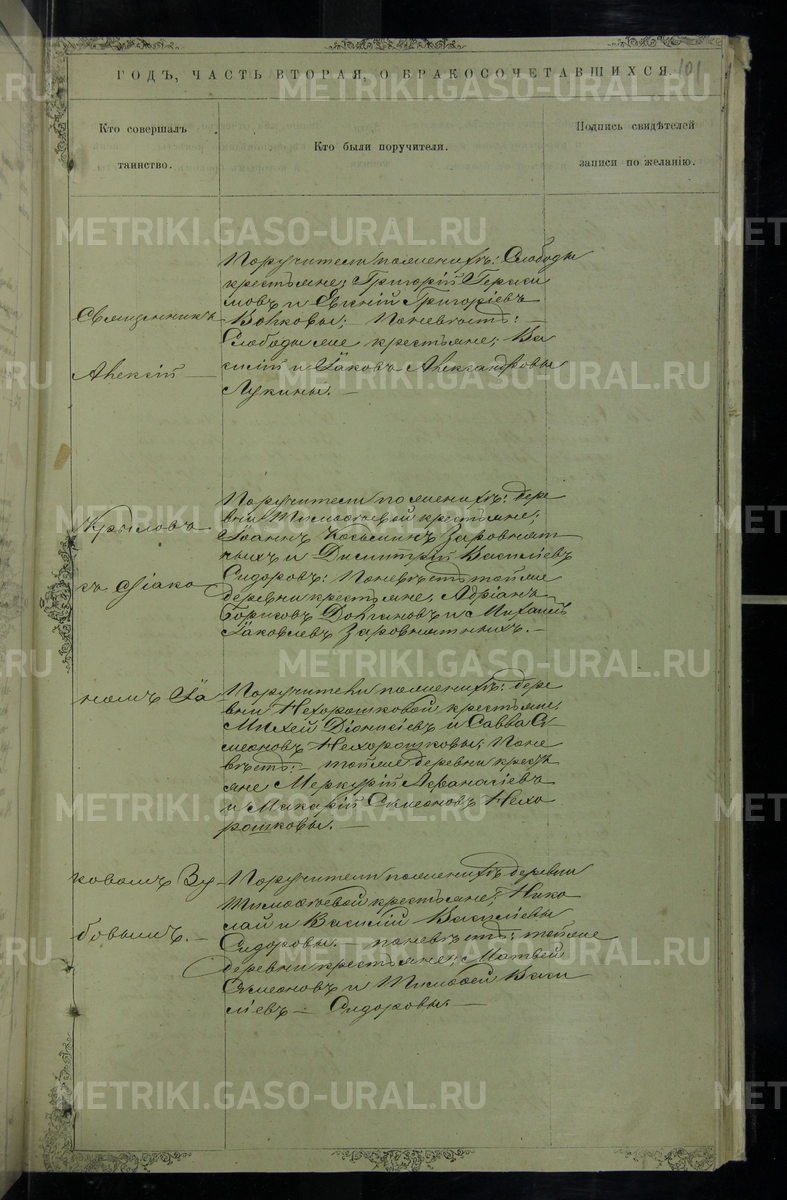 101
ГОДЪ, ЧАСТЬ ВТОРАЯ, О БРАКОСОЧЕТАВШИХСЯ.
Кто совершалъ
таинство.
Кто были поручители.
Подпись свидѣтелей
записи по желанію.
Священникъ
Алексій
Крыловъ
съ Діако
номъ Іа
ковомъ Зу
бовымъ. —
Поручители по женихѣ: Слободы
крестьяне; Григорій Гераси
мовъ и Евгеній Григоріевъ
Волковы; По невѣстѣ: —
Слободы же крестьяне; Ва
силій и Іаковъ Александровы
Лукины. —
Поручители по женихѣ: дере
вни Тимоѳеевой крестьяне;
Іоаннъ Косьминъ Заровнят
ныхъ и Димитрій Василіевъ
Сидоровъ: По невѣстѣ той же
деревни крестьяне, Адріанъ
Борисовъ Долгановъ и Михаилъ
Іаковлевъ Заровнятныхъ. —
Поручители по женихѣ: дере
вни Нехорошковой крестьяне,
Михей Діонисіевъ и Савва Си
меоновъ Нехорошковы; По не
вѣстѣ: — той же деревни кресть
яне Меркурій Аѳанасіевъ
и Макарій Симеоновъ Нехо
рошковы. —
Поручители по женихѣ деревни
Тимоѳеевой крестьяне; Нико
лай и Василій Василіевы
Сидоровы. по невѣстѣ: той же
деревни крестьяне; Матвей
Симеоновъ и Тимоѳей Васи
ліевъ — Сидоровы. —
METRIKI.GASO-URAL.RU